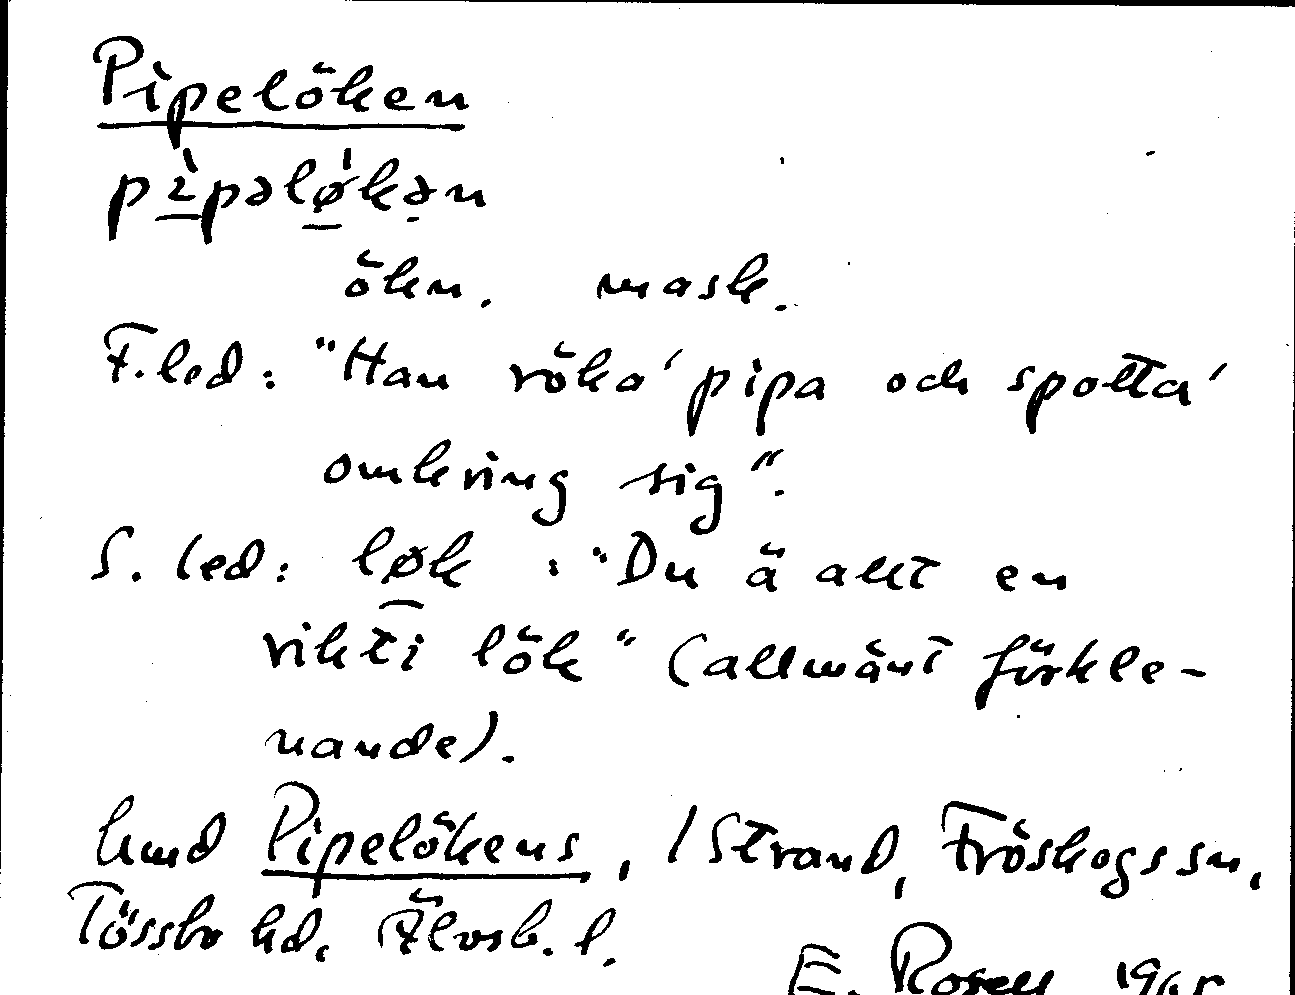 Pipelöken
pìpəlø̀kən
ökn. mask.
F.led: "Han röka' pipa och spotta'
omkring sig".
S. led: løk : "Du ä allt en
rikti lök" (allmänt förkle-
nande).
hmd Pipelökens, / Strand, Fröskogs sn,
Tössbo hd, Älvsb. l.
E. Rosell